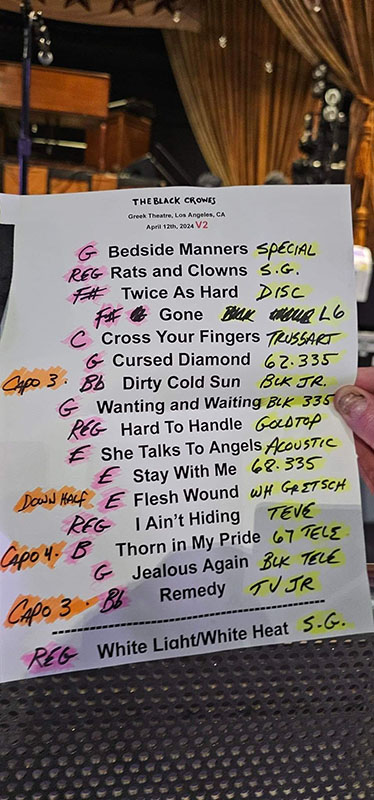 THE BLACK CROWES
Greek Theatre, Los Angeles, CA
April 12th, 2024 V2
G Bedside Manners SPECIAL
REG Rats and Clowns S.G.
F# Twice As Hard DISC
F# Gone L6
C Cross Your Fingers TRUSSART
G Cursed Diamond 62.335
CAPO 3. Bb Dirty Cold Sun BLK JR.
G Wanting and Waiting BLK 335
REG Hard To Handle GOLDTOP
E She Talks To Angels ACOUSTIC
E Stay With Me 62.335
DOWN HALF E Flesh Wound WH GRETSCH
REG I Ain't Hiding TEVE
CAPO 4. B Thorn in My Pride 67 TELE
G Jealous Again BLK TELE
CAPO 3. Bb Remedy TV JR
REG White Light/White Heat S.G.